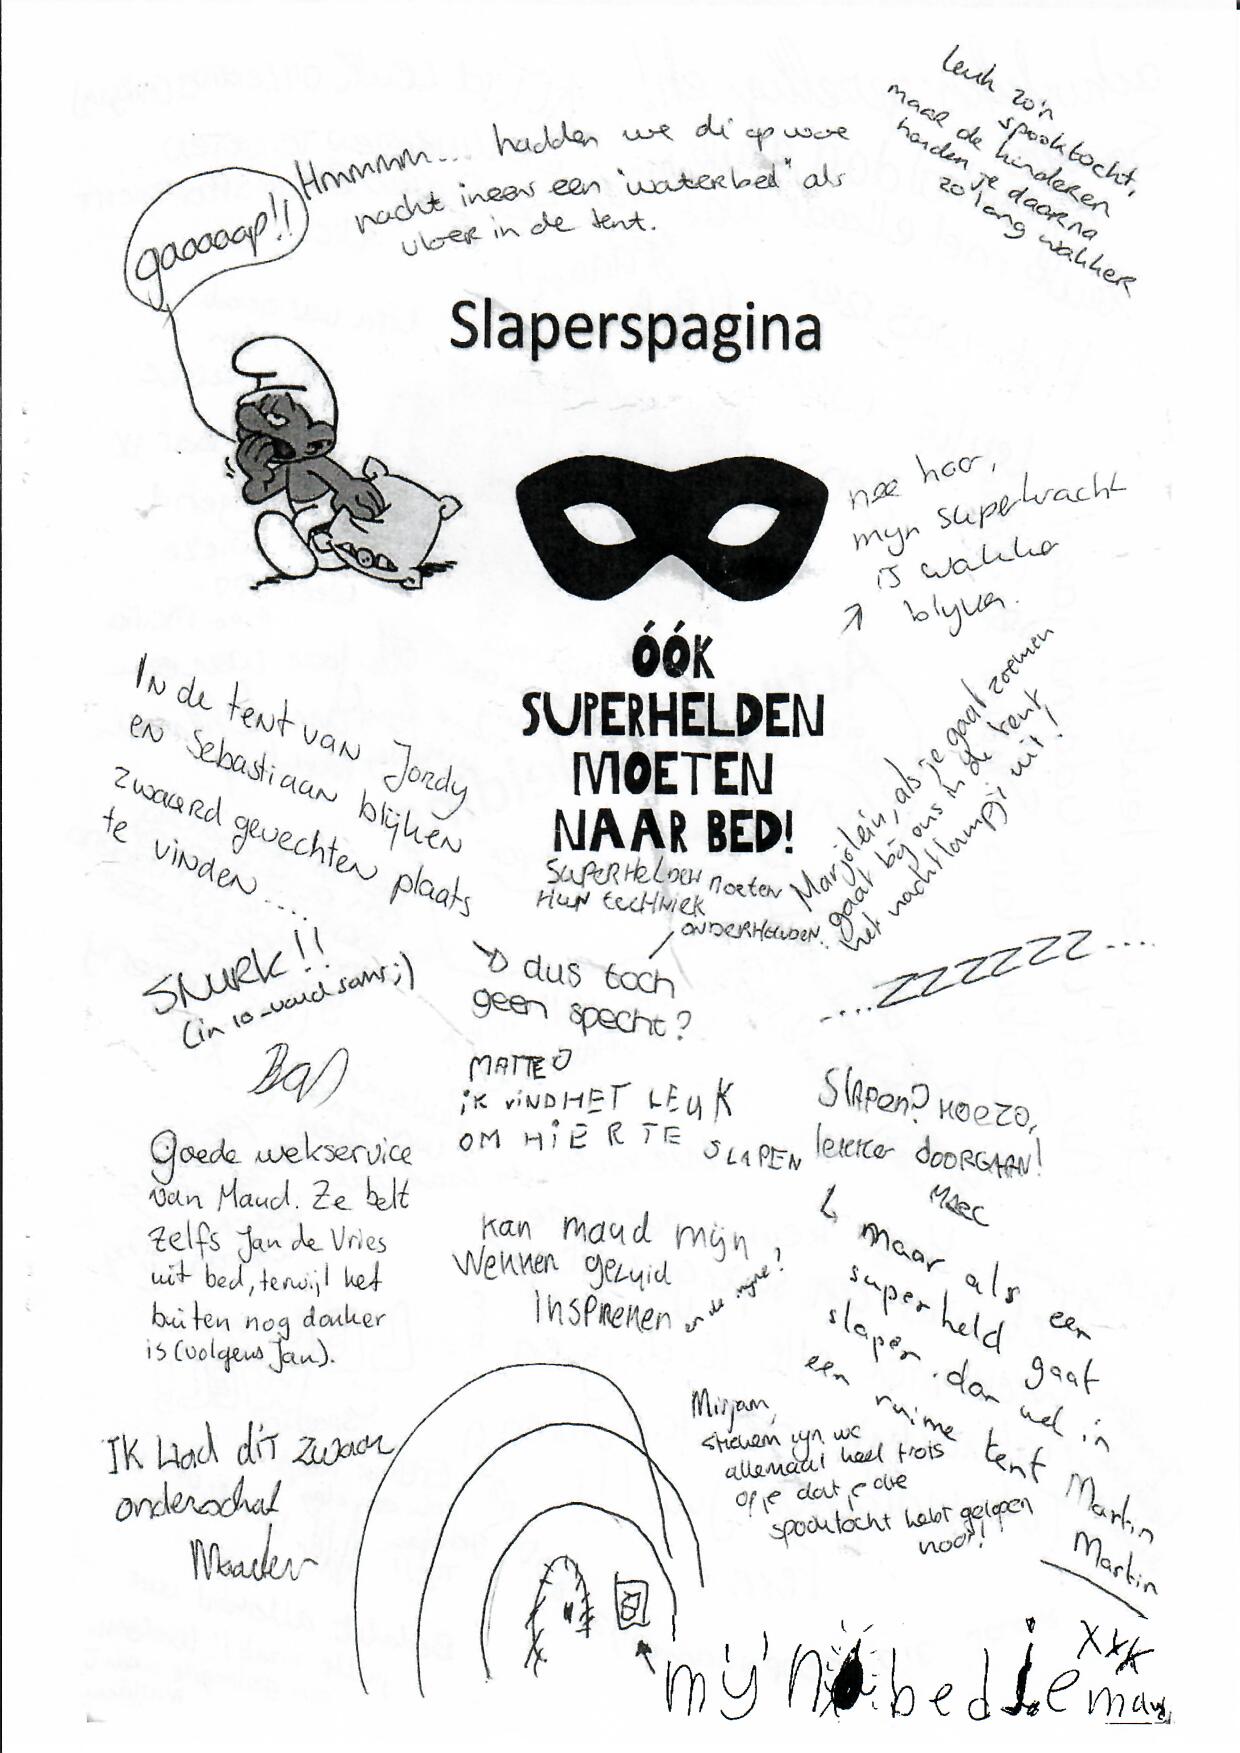 Leuk zo'n
spooktocht,
maar de kinderen
houden je daarna
zo lang wakker
Hmmmm... hadden we di op woe
nacht ineens een "waterbed" als
vloer in de tent.
gaoooap!!
Slaperspagina
nee hoor,
mijn superkracht
is wakker
blijven.
ÓÓK
SUPERHELDEN
MOETEN
NAAR BED!
In de tent van Jordy
en Sebastiaan blijken
zwaard gevechten plaats
te vinden.....
Marjolein, als je gaat zoemen
gaat bij ons in de tent
het nachtlampje uit!
SUPERHELDEN moeten
HUN tECHNIEK
ONDERHOUDEN.
dus toch
geen specht?
....ZZZZZZZ....
SNURK!!
(in 10-voud soms;)
Bas
MATTEO
iK ViND HET LEUK
OM HiER TE SLAPEN
Slapen? HOEZO,
lekker DOORGAAN!
Marc
Goede wekservice
van Maud. Ze belt
zelfs Jan de Vries
uit bed, terwijl het
buiten nog donker
is (volgens Jan).
Kan maud mijn
Wekker geluid
inspreken
en de mijne?
maar als een
superheld gaat
slapen. dan wel in
een ruime tent
Martin
Martin
Mirjam,
stiekem zijn we
allemaal heel trots
op je dat je die
spooktocht hebt gelopen
hoor!
IK Had dit zwaar
onderschat
Maarten
mijn bedje
xxx
maud